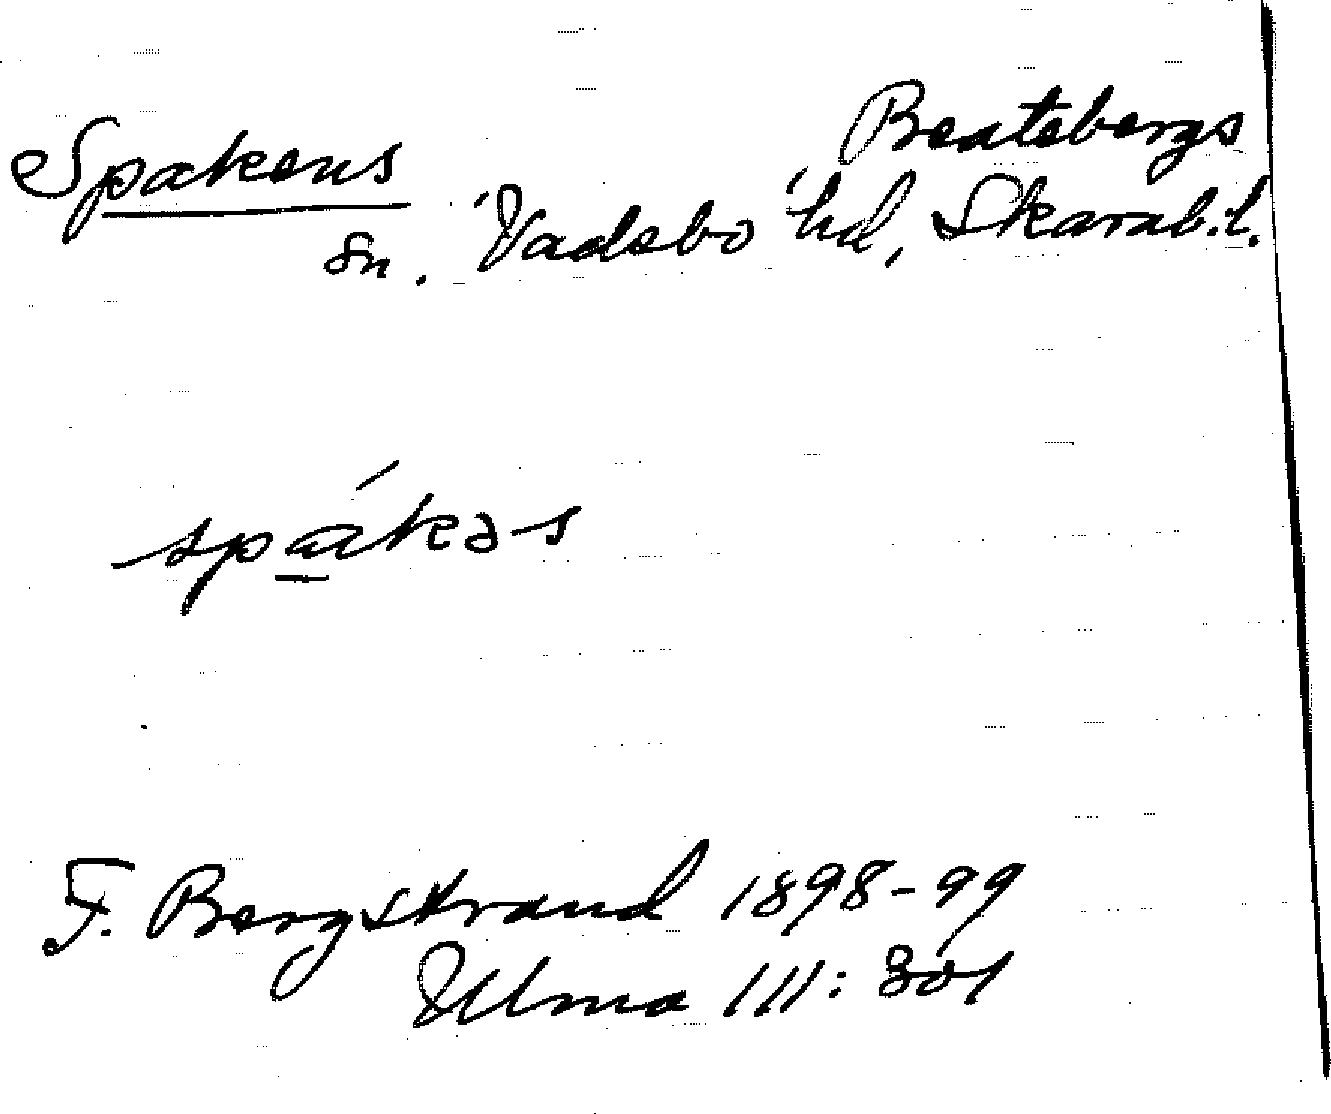 Spakens
Beatebergs
sn. Vadsbo hd, Skarab.l.
spákəs
F. Bergstrand 1898-99
Ulma 111:301